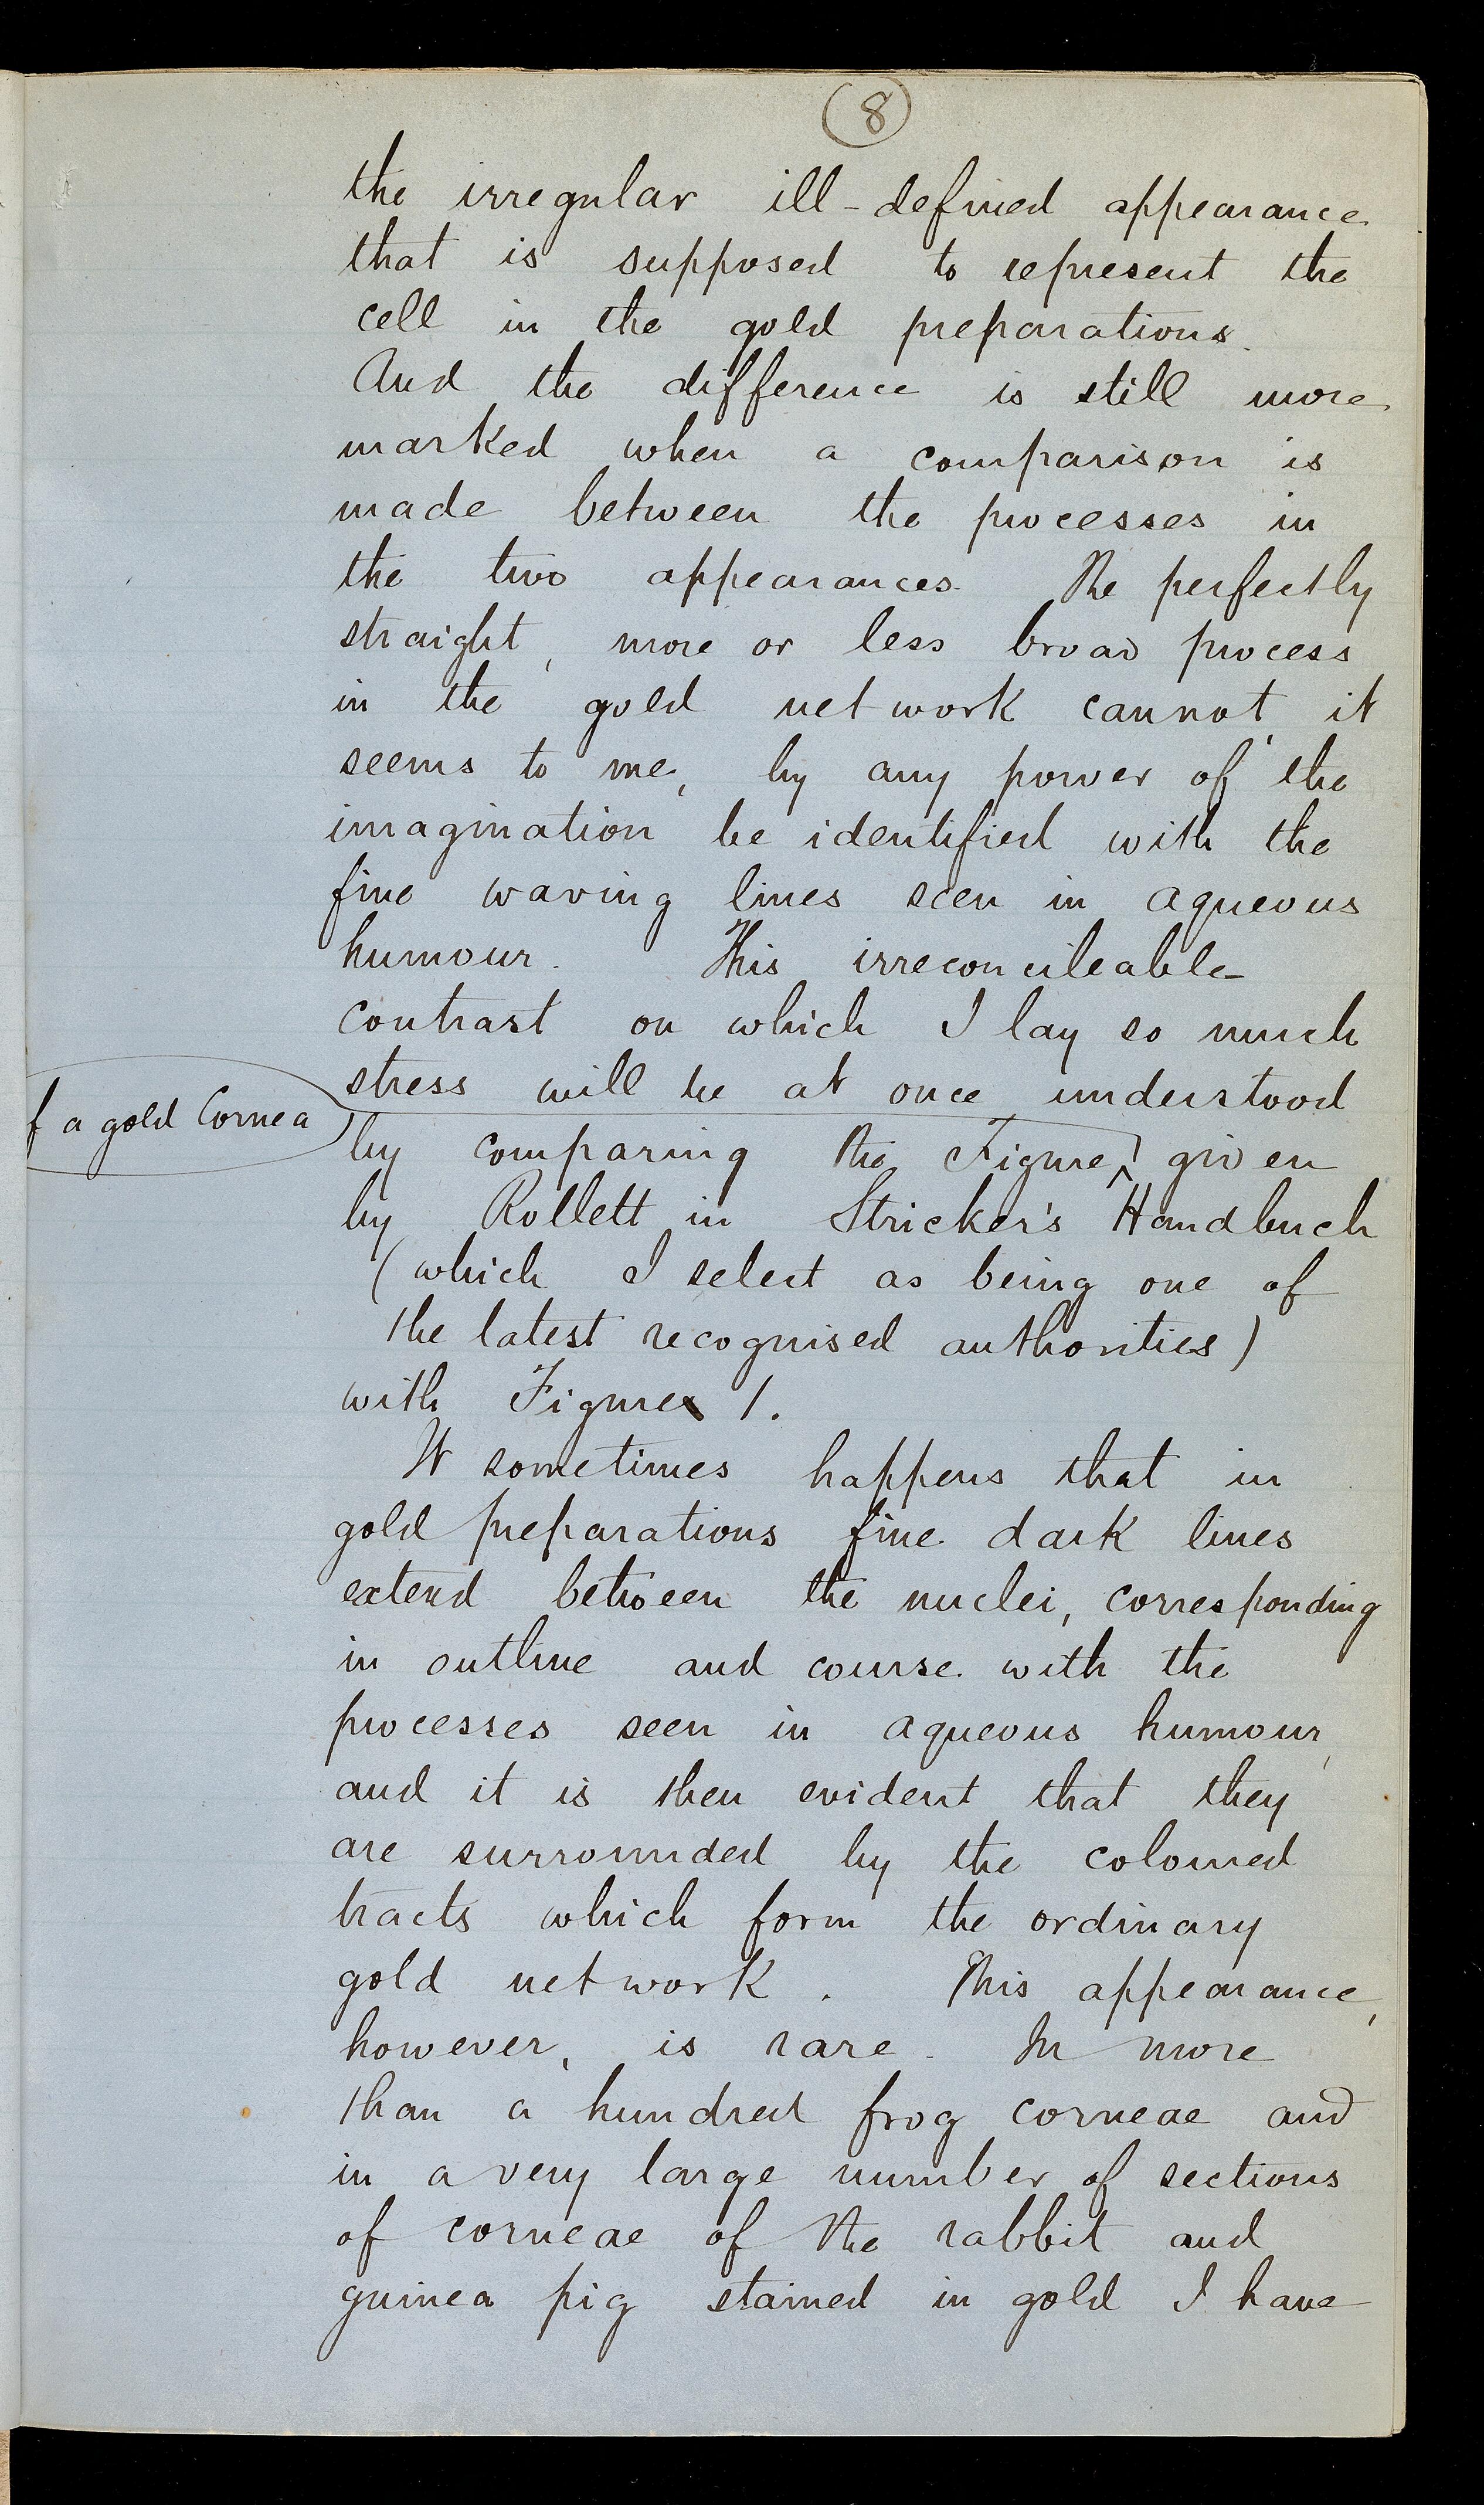 8
the irregular ill-defined appearance
that is supposed to represent the
cell in the gold preparations.
And the difference is still more
marked when a comparison is
made between the processes in
the two appearances. The perfectly
straight, more or less broad process
in the gold network cannot, it
seems to me, by any power of the
imagination be identified with the
fine waving lines seen in aqueous
humour. This irreconcileable
contrast on which I lay so much
stress will be at once understood
f a gold Cornea
by comparing the Figure, given
by Rollett in Stricker's Handbuch
(which I select as being one of
the latest recognised authorities)
with Figure 1.
It sometimes happens that in
gold preparations fine dark lines
extend between the nuclei, corresponding
in outline and course with the
processes seen in aqueous humour,
and it is then evident that they
are surrounded by the coloured
tracts which form the ordinary
gold network. This appearance,
however, is rare. In more
than a hundred frog corneae and
in a very large number of sections
of corneae of the rabbit and
guinea pig stained in gold I have